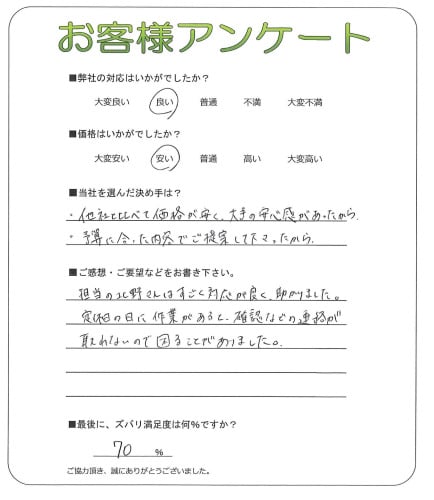 お客様アンケート
■弊社の対応はいかがでしたか?
大変良い 良い 普通 不満 大変不満
■価格はいかがでしたか?
大変安い 安い 普通 高い 大変高い
■当社を選んだ決め手は?
・他社と比べて価格が安く、大手の安心感があったから.
・予算に合った内容でご提案して下さったから.
■ご感想・ご要望などをお書き下さい。
担当の北野さんはすごく対応が良く、助かりました。
定休の日に作業があると、確認などの連絡が
取れないので困ることがありました。
■最後に、ズバリ満足度は何%ですか?
70 %
ご協力頂き、誠にありがとうございました。